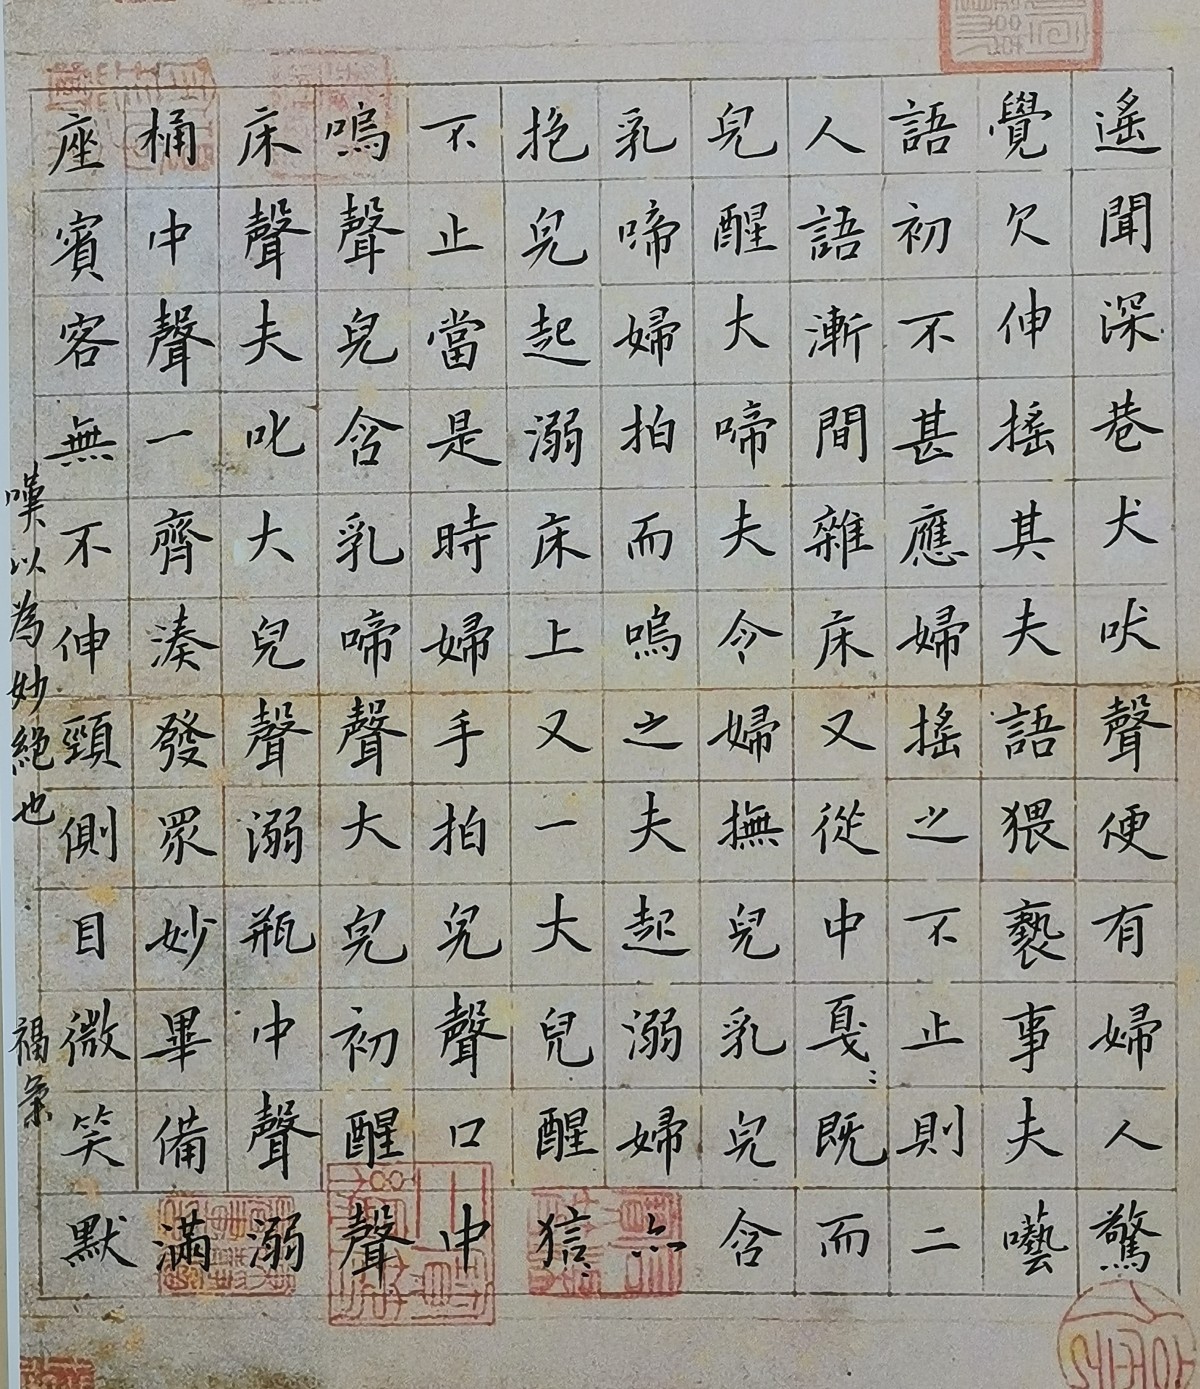 遙聞深巷犬吠聲便有婦人驚
覺欠伸搖其夫語猥褻事夫囈
語初不甚應婦搖之不止則二
人語漸間雜床又從中戛〻既而
兒醒大啼夫令婦撫兒乳兒含
乳啼婦拍而嗚之夫起溺婦亦
抱兒起溺床上又一大兒醒狺〻
不止當是時婦手拍兒聲口中
嗚聲兒含乳啼聲大兒初醒聲
床聲夫叱大兒聲溺瓶中聲溺
桶中聲一齊湊發眾妙畢備滿
座賓客無不伸頸側目微笑默
嘆以為妙絕也 福栄